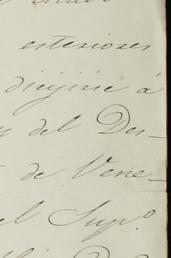 esteriores
dirijirse á
del Des-
de Vene-
el Sup.o